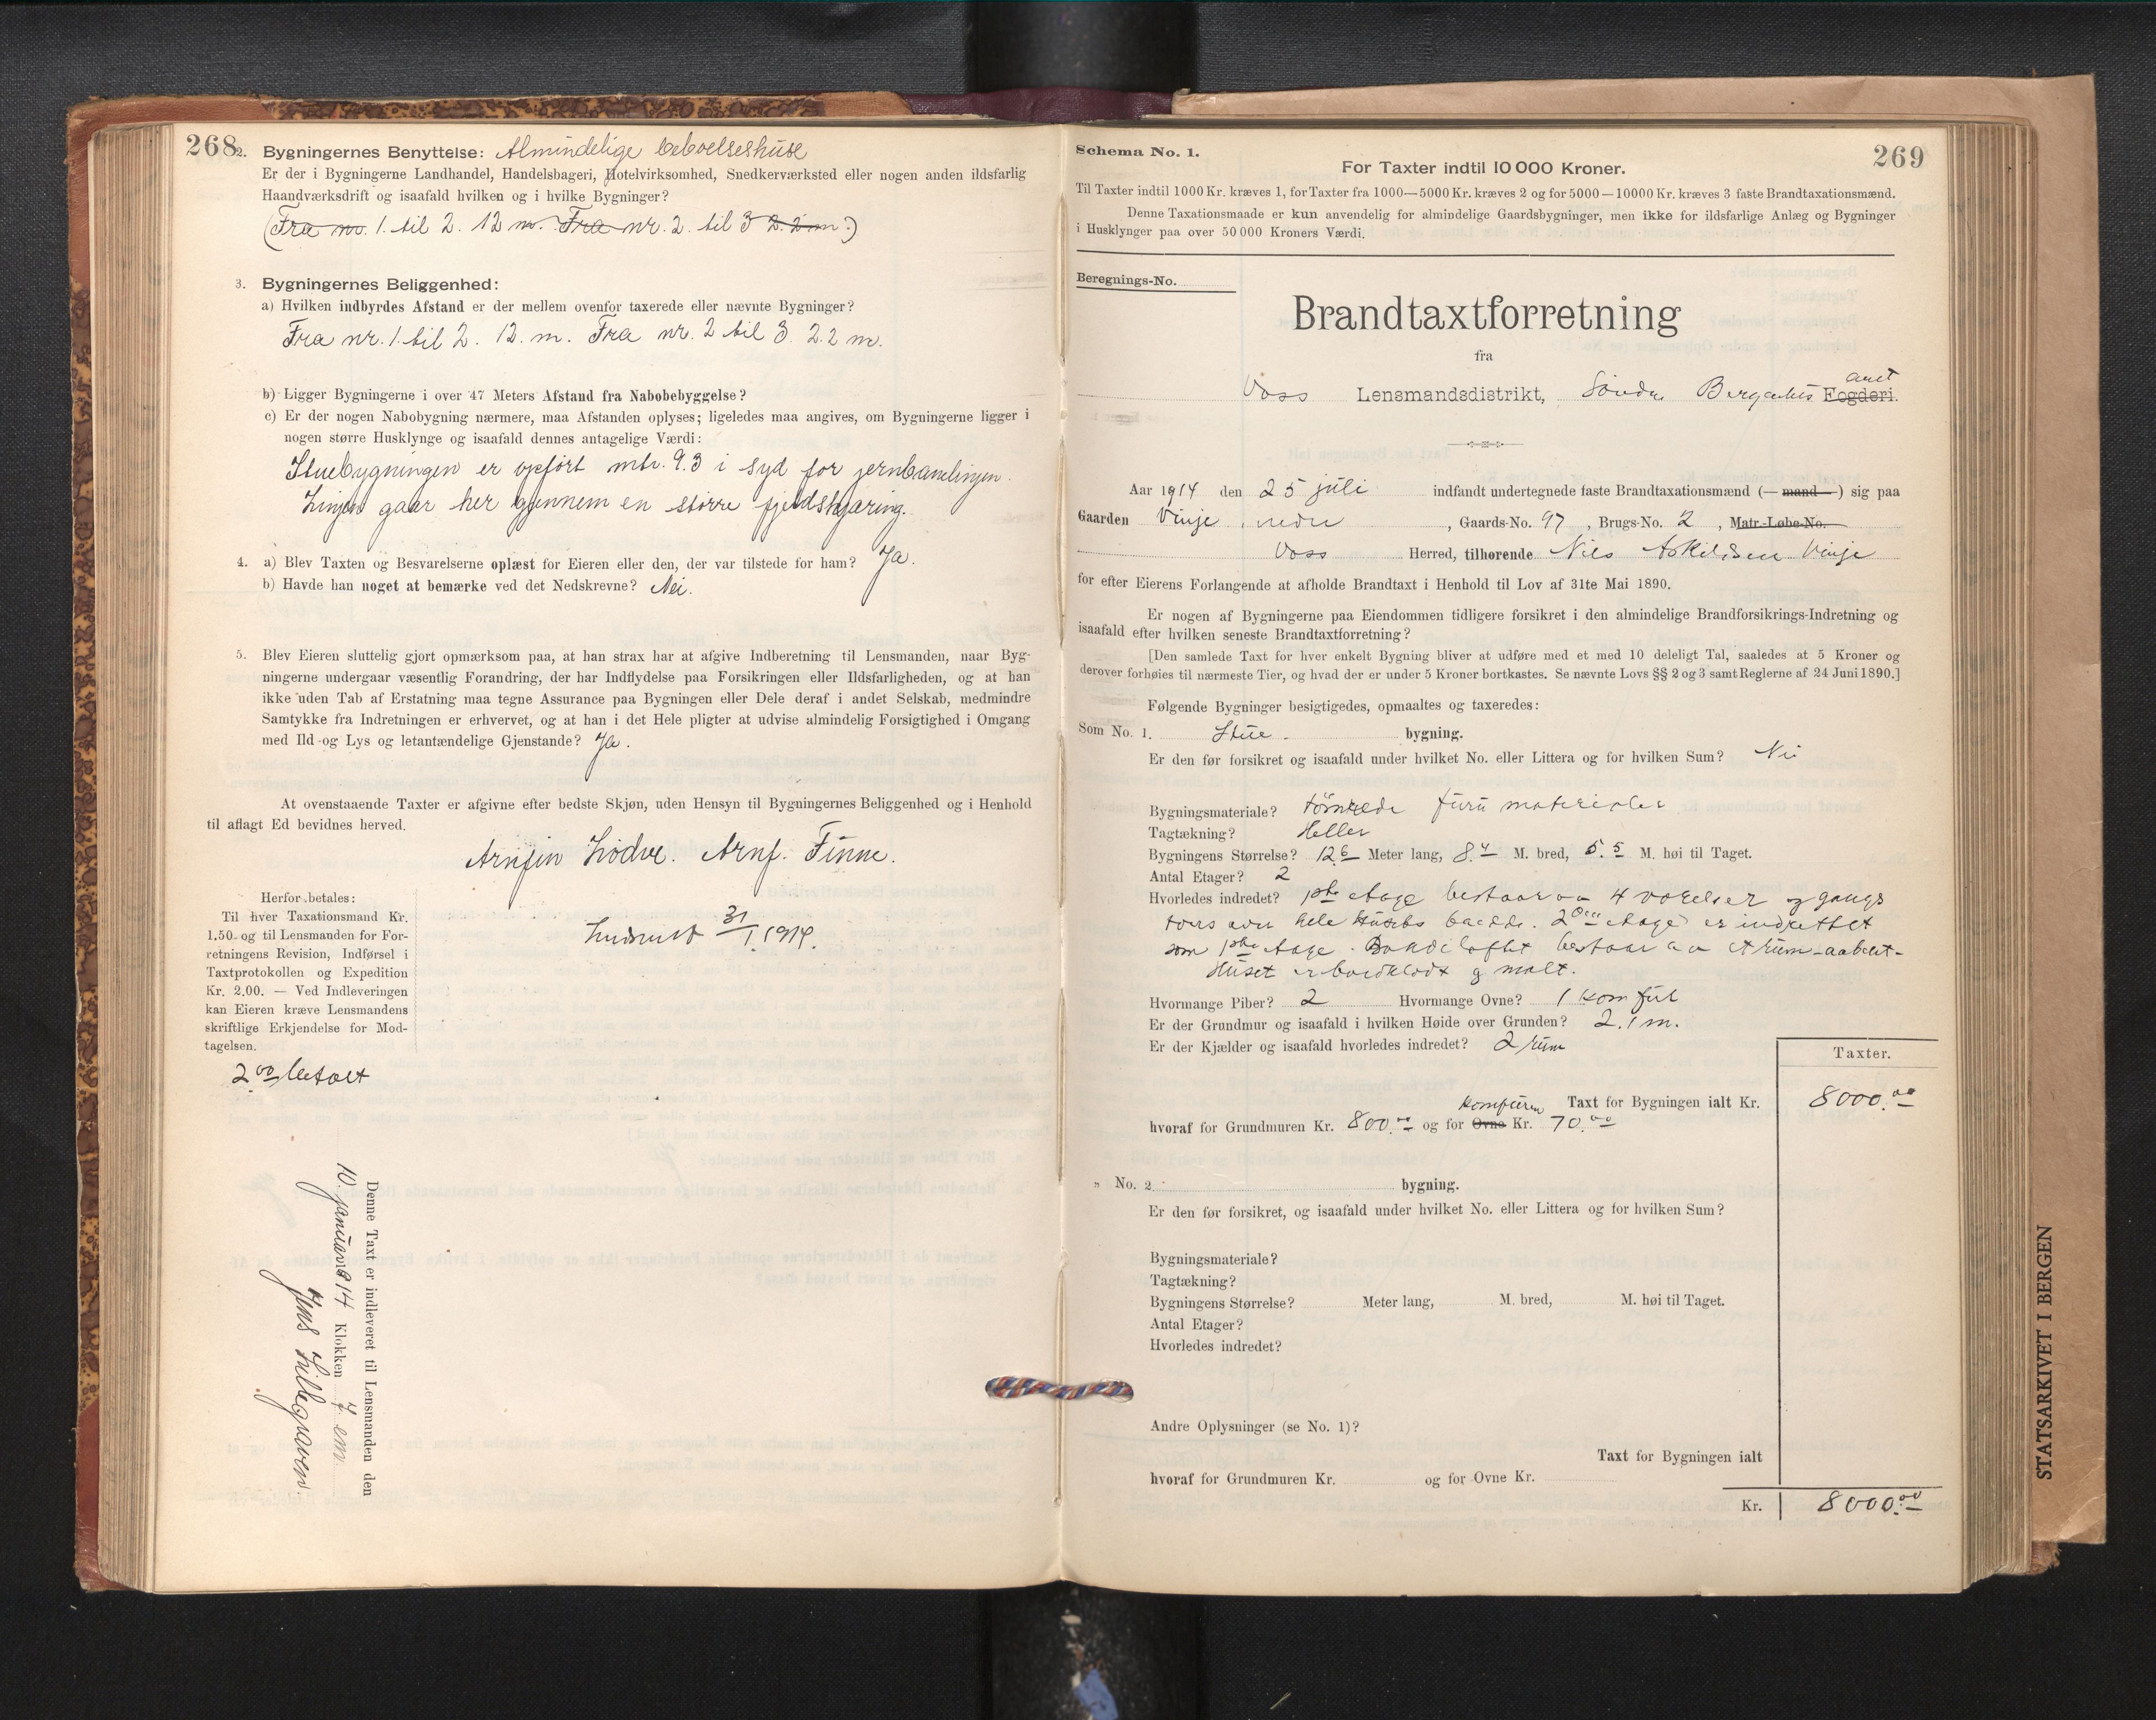 268
2. Bygningernes Benyttelse: Almindelige beboelseshuse
Er der i Bygningerne Landhandel, Handelsbageri, Hotelvirksomhed, Snedkerværksted eller nogen anden ildsfarlig
Haandværksdrift og isaafald hvilken og i hvilke Bygninger?
(Fra nr. 1. til 2. 12 m. Fra nr. 2. til 3 2.2 m.)
3. Bygningernes Beliggenhed:
a) Hvilken indbyrdes Afstand er der mellem ovenfor taxerede eller nævnte Bygninger?
Fra nr. 1. til 2. 12. m. Fra nr. 2 til 3. 2.2 m.
b) Ligger Bygningerne i over 47 Meters Afstand fra Nabobebyggelse?
c) Er der nogen Nabobygning nærmere, maa Afstanden oplyses; ligeledes maa angives, om Bygningerne ligger i
nogen større Husklynge og isaafald dennes antagelige Værdi:
Stuebygningen er opført mtr. 9.3 i syd for jernbanelinjen.
Linjen gaar her gjennem en større fjeldskjæring.
4. a) Blev Taxten og Besvarelserne oplæst for Eieren eller den, der var tilstede for ham? Ja.
b) Havde han noget at bemærke ved det Nedskrevne? Nei.
5. Blev Eieren sluttelig gjort opmærksom paa, at han strax har at afgive Indberetning til Lensmanden, naar Byg-
ningerne undergaar væsentlig Forandring, der har Indflydelse paa Forsikringen eller Ildsfarligheden, og at han
ikke uden Tab af Erstatning maa tegne Assurance paa Bygningen eller Dele deraf i andet Selskab, medmindre
Samtykke fra Indretningen er erhvervet, og at han i det Hele pligter at udvise almindelig Forsigtighed i Omgang
med Ild og Lys og letantændelige Gjenstande? Ja.
At ovenstaaende Taxter er afgivne efter bedste Skjøn, uden Hensyn til Bygningernes Beliggenhed og i Henhold
til aflagt Ed bevidnes herved.
Arnfin Lødve. Arnf. Finne.
31/1 1914.
Herfor betales:
Til hver Taxationsmand Kr.
1.50 og til Lensmanden for For-
retningens Revision, Indførsel i
Taxtprotokollen og Expedition
Kr. 2.00. — Ved Indleveringen
kan Eieren kræve Lensmandens
skriftlige Erkjendelse for Mod-
tagelsen.
2.00 betalt
Denne Taxt er indleveret til Lensmanden den
10. januar 1914 Klokken 7 em
Jens Lillegraven
269
Schema No. 1.
For Taxter indtil 10 000 Kroner.
Til Taxter indtil 1000 Kr. kræves 1, for Taxter fra 1000—5000 Kr. kræves 2 og for 5000—10000 Kr. kræves 3 faste Brandtaxationsmænd.
Denne Taxationsmaade er kun anvendelig for almindelige Gaardsbygninger, men ikke for ildsfarlige Anlæg og Bygninger
i Husklynger paa over 50 000 Kroners Værdi.
Beregnings-No.
Brandtaxtforretning
fra
amt
Voss Lensmandsdistrikt, Søndre Bergenhus Fogderi.
Aar 1914 den 25 juli indfandt undertegnede faste Brandtaxationsmænd (— mand —) sig paa
Gaarden Vinje nedre, Gaards-No. 97, Brugs-No. 2, Matr.-Løbe-No.
Voss Herred, tilhørende Nils Askildsen Vinje
for efter Eierens Forlangende at afholde Brandtaxt i Henhold til Lov af 31te Mai 1890.
Er nogen af Bygningerne paa Eiendommen tidligere forsikret i den almindelige Brandforsikrings-Indretning og
isaafald efter hvilken seneste Brandtaxtforretning?
[Den samlede Taxt for hver enkelt Bygning bliver at udføre med et med 10 deleligt Tal, saaledes at 5 Kroner og
derover forhøies til nærmeste Tier, og hvad der er under 5 Kroner bortkastes. Se nævnte Lovs §§ 2 og 3 samt Reglerne af 24 Juni 1890.]
Følgende Bygninger besigtigedes, opmaaltes og taxeredes:
Som No. 1. Stue. bygning.
Er den før forsikret og isaafald under hvilket No. eller Littera og for hvilken Sum? Nei
Bygningsmateriale? tømrede furu materialer
Tagtækning? Heller
Bygningens Størrelse? 12.6 Meter lang, 8.4 M. bred, 5.5 M. høi til Taget.
Antal Etager? 2
Hvorledes indredet? 1ste etage bestaar av 4 værelser og gangs
tvers over hele husets bredde. 2den etage er indrettet
som 1ste etage. bestaar av et rum aabent
Huset er bordklædt og malt.
Hvormange Piber? 2 Hvormange Ovne? 1 komfur
Er der Grundmur og isaafald i hvilken Høide over Grunden? 2.1 m.
Er der Kjælder og isaafald hvorledes indredet? 2 rum
Taxter.
Taxt for Bygningen ialt Kr. 8000.00
komfuren
hvoraf for Grundmuren Kr. 800.00 og for Ovne Kr. 70.00
„ No. 2 bygning.
Er den før forsikret, og isaafald under hvilket No. eller Littera og for hvilken Sum?
Bygningsmateriale?
Tagtækning?
Bygningens Størrelse? Meter lang, M. bred, M. høi til Taget.
Antal Etager?
Hvorledes indredet?
Andre Oplysninger (se No. 1)?
Taxt for Bygningen ialt
hvoraf for Grundmuren Kr. og for Ovne Kr.
Kr. 8000.00
STATSARKIVET I BERGEN